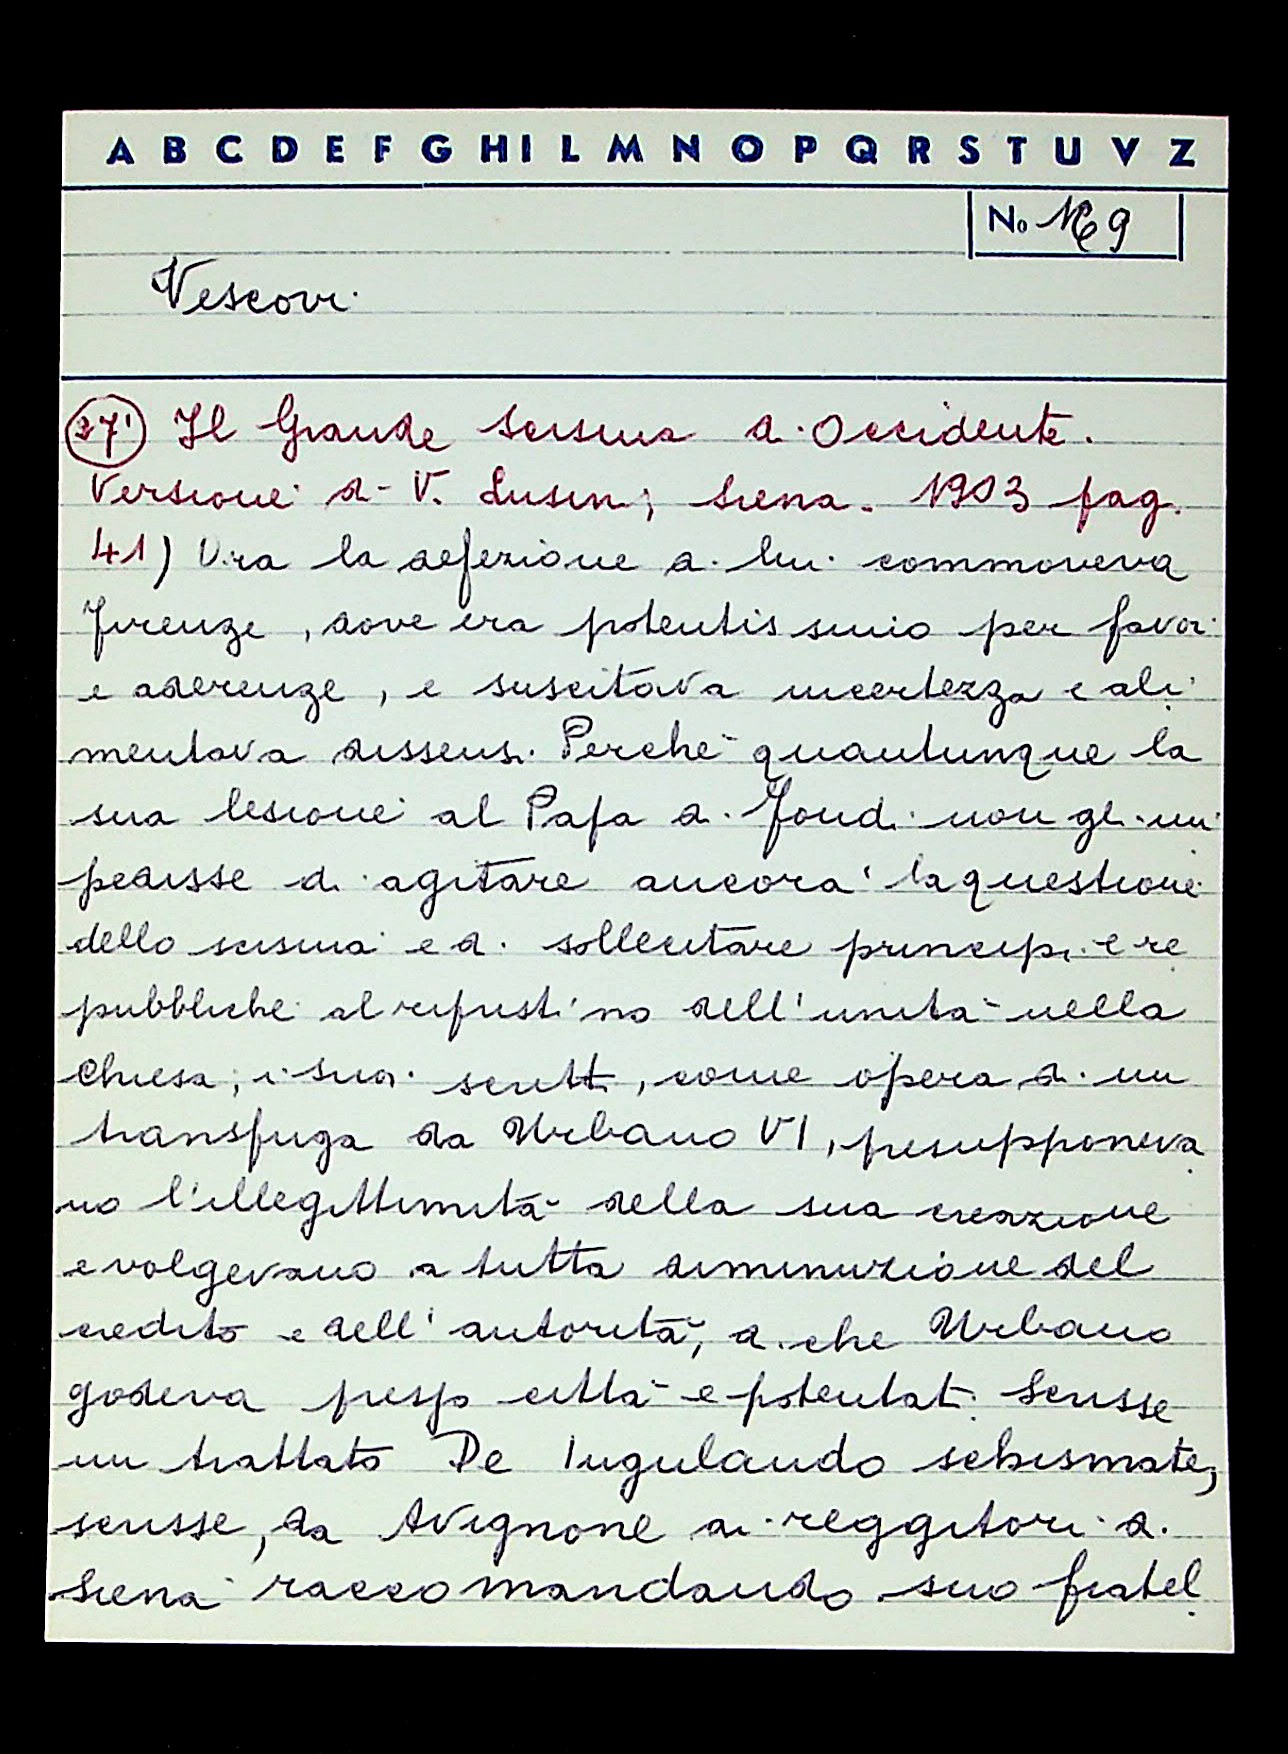 A B C D E F G H I L M N O P Q R S T U V Z
No 9
Vescovi
Il Grande scisma di Occidente.
Versione di V. Lusini; Siena. 1903 pag.
41) Ora la defezione di lui commoveva
Firenze, dove era potentissimo per favori
e aderenze, e suscitava incertezza e ali
mentava dissensi. Perchè quantunque la
sua lesione al Papa di Fondi non gli im
pedisse di agitare ancora la questione
dello scisma e di sollecitare principi e re
pubbliche al ripristino dell'unità nella
Chiesa, i suoi scritti, come opera di un
transfuga da Urbano VI, presupponeva
no l'illegittimità della sua creazione
e volgevano a tutta diminuzione del
credito e dell'autorità, di che Urbano
godeva presso città e potentati. Scrisse
un trattato De Iugulando schismate,
scrisse, da Avignone ai reggitori di
Siena raccomandando suo fratel